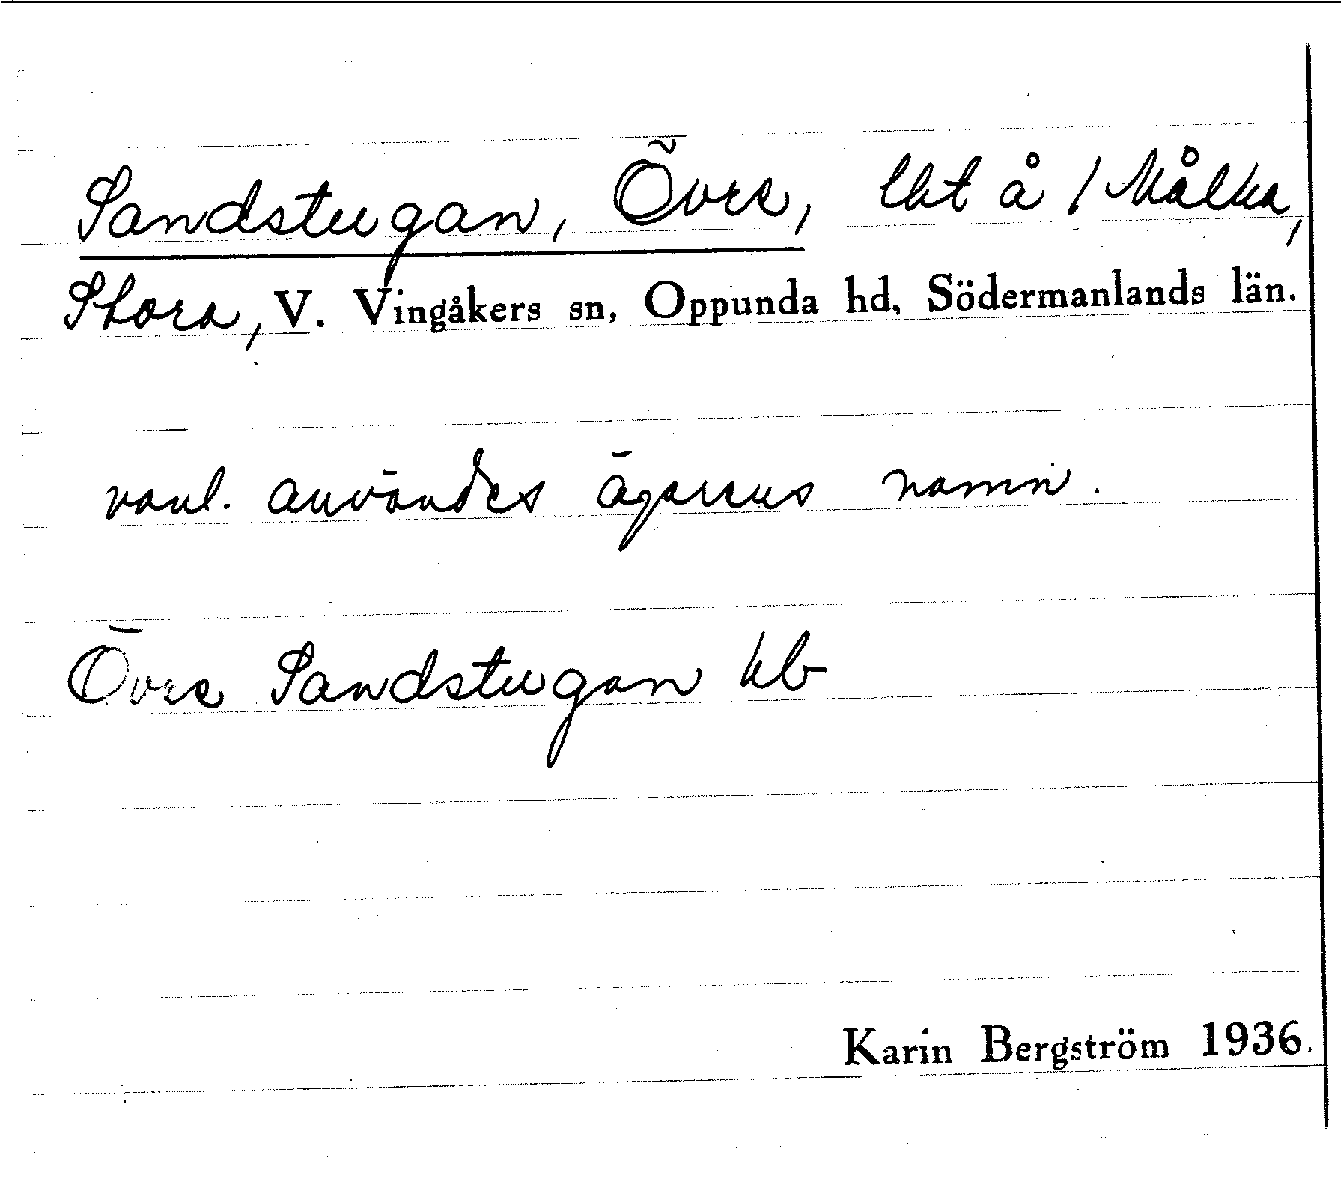 Sandstugan, Övre, lht å 1 Målka,
Stora, V. Vingåkers sn, Oppunda hd, Södermanlands län.
vanl. användes ägarens namn.
Övre Sandstugan kb
Karin Bergström 1936.